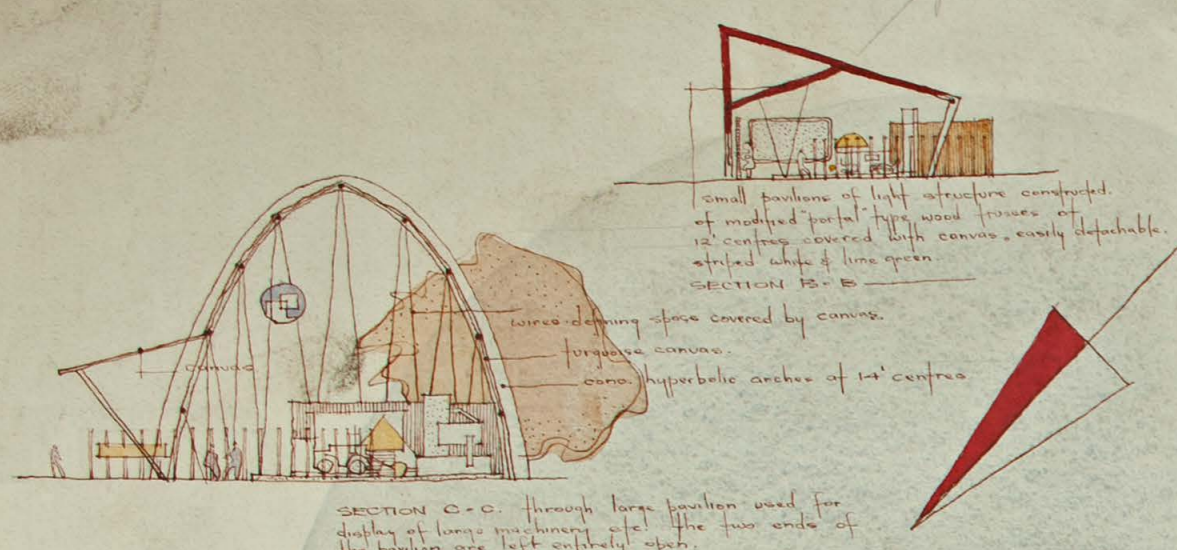 small pavilions of light structure constructed.
of modified "portal" type, wood trusses at
12' centres covered with canvas, easily detachable.
striped white & lime green.
SECTION B-B
wires defining space covered by canvas.
turquoise canvas.
canvas
conc. hyperbolic arches at 14' centres
SECTION C-C. through large pavilion used for
display of large machinery etc. the two ends of
the pavilion are left entirely open.